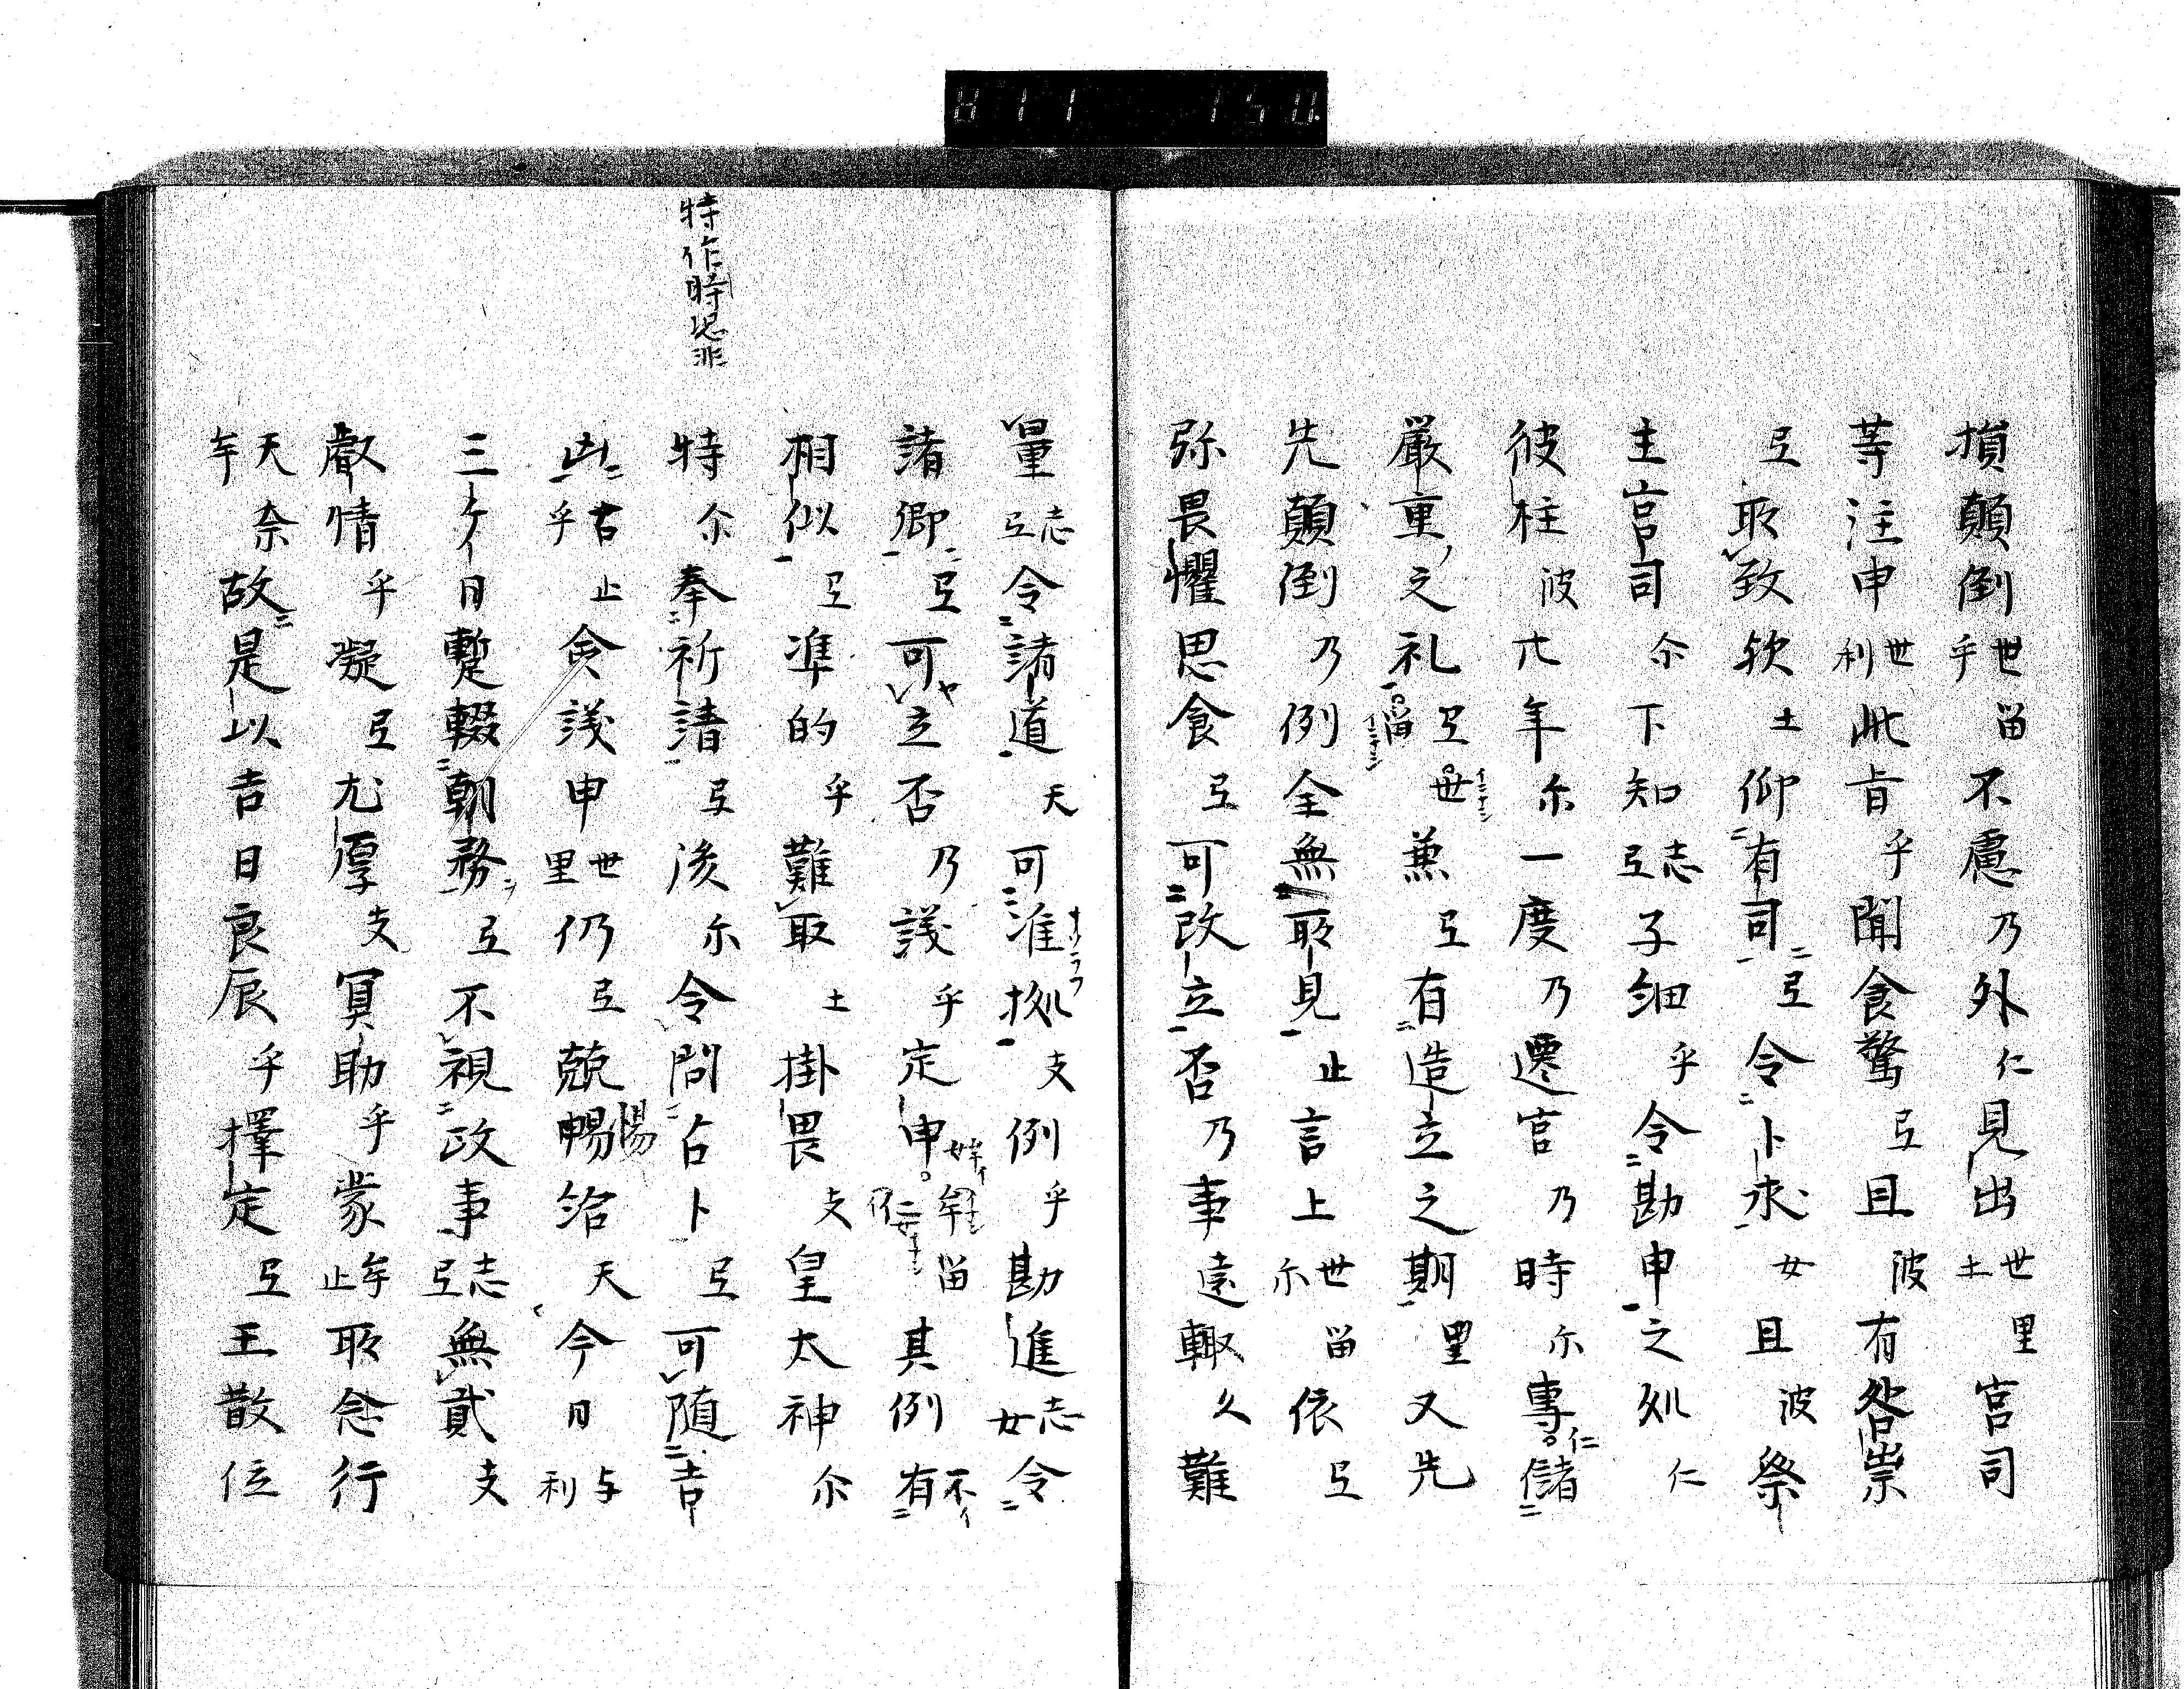 損顛倒世留乎不慮乃外仁見出世里土宮司
等注申世利此旨乎聞食驚弖且波有咎祟
弖耶致欤土仰有司弖令卜求女且波祭
主宮司尓下知志弖子細乎令勘申之処仁
彼柱波廿年尓一度乃遷宮乃時尓專仁儲
嚴重之礼弖世留兼弖有造立之期里又先
先顛倒乃例全無所見止言上世留尓依弖
弥畏懼思食弖可改立否乃事遠輙久難
量志弖令諸道天可准拠支例乎勘進志女令
諸卿弖可立否乃議乎定申牟留其例有
相似弖準的乎難取土掛畏支皇太神尓
特尓奉祈請弖後尓令問占卜弖可随吉
凶古止乎僉議申世里仍弖兢惕給天今日与利
三ケ日暫輟朝務弖不視政事志弖無貳支
叡情乎凝弖尤厚支冥助乎蒙牟止所念行
天奈牟故是以吉日良辰乎擇定弖王散位
特作時恐非